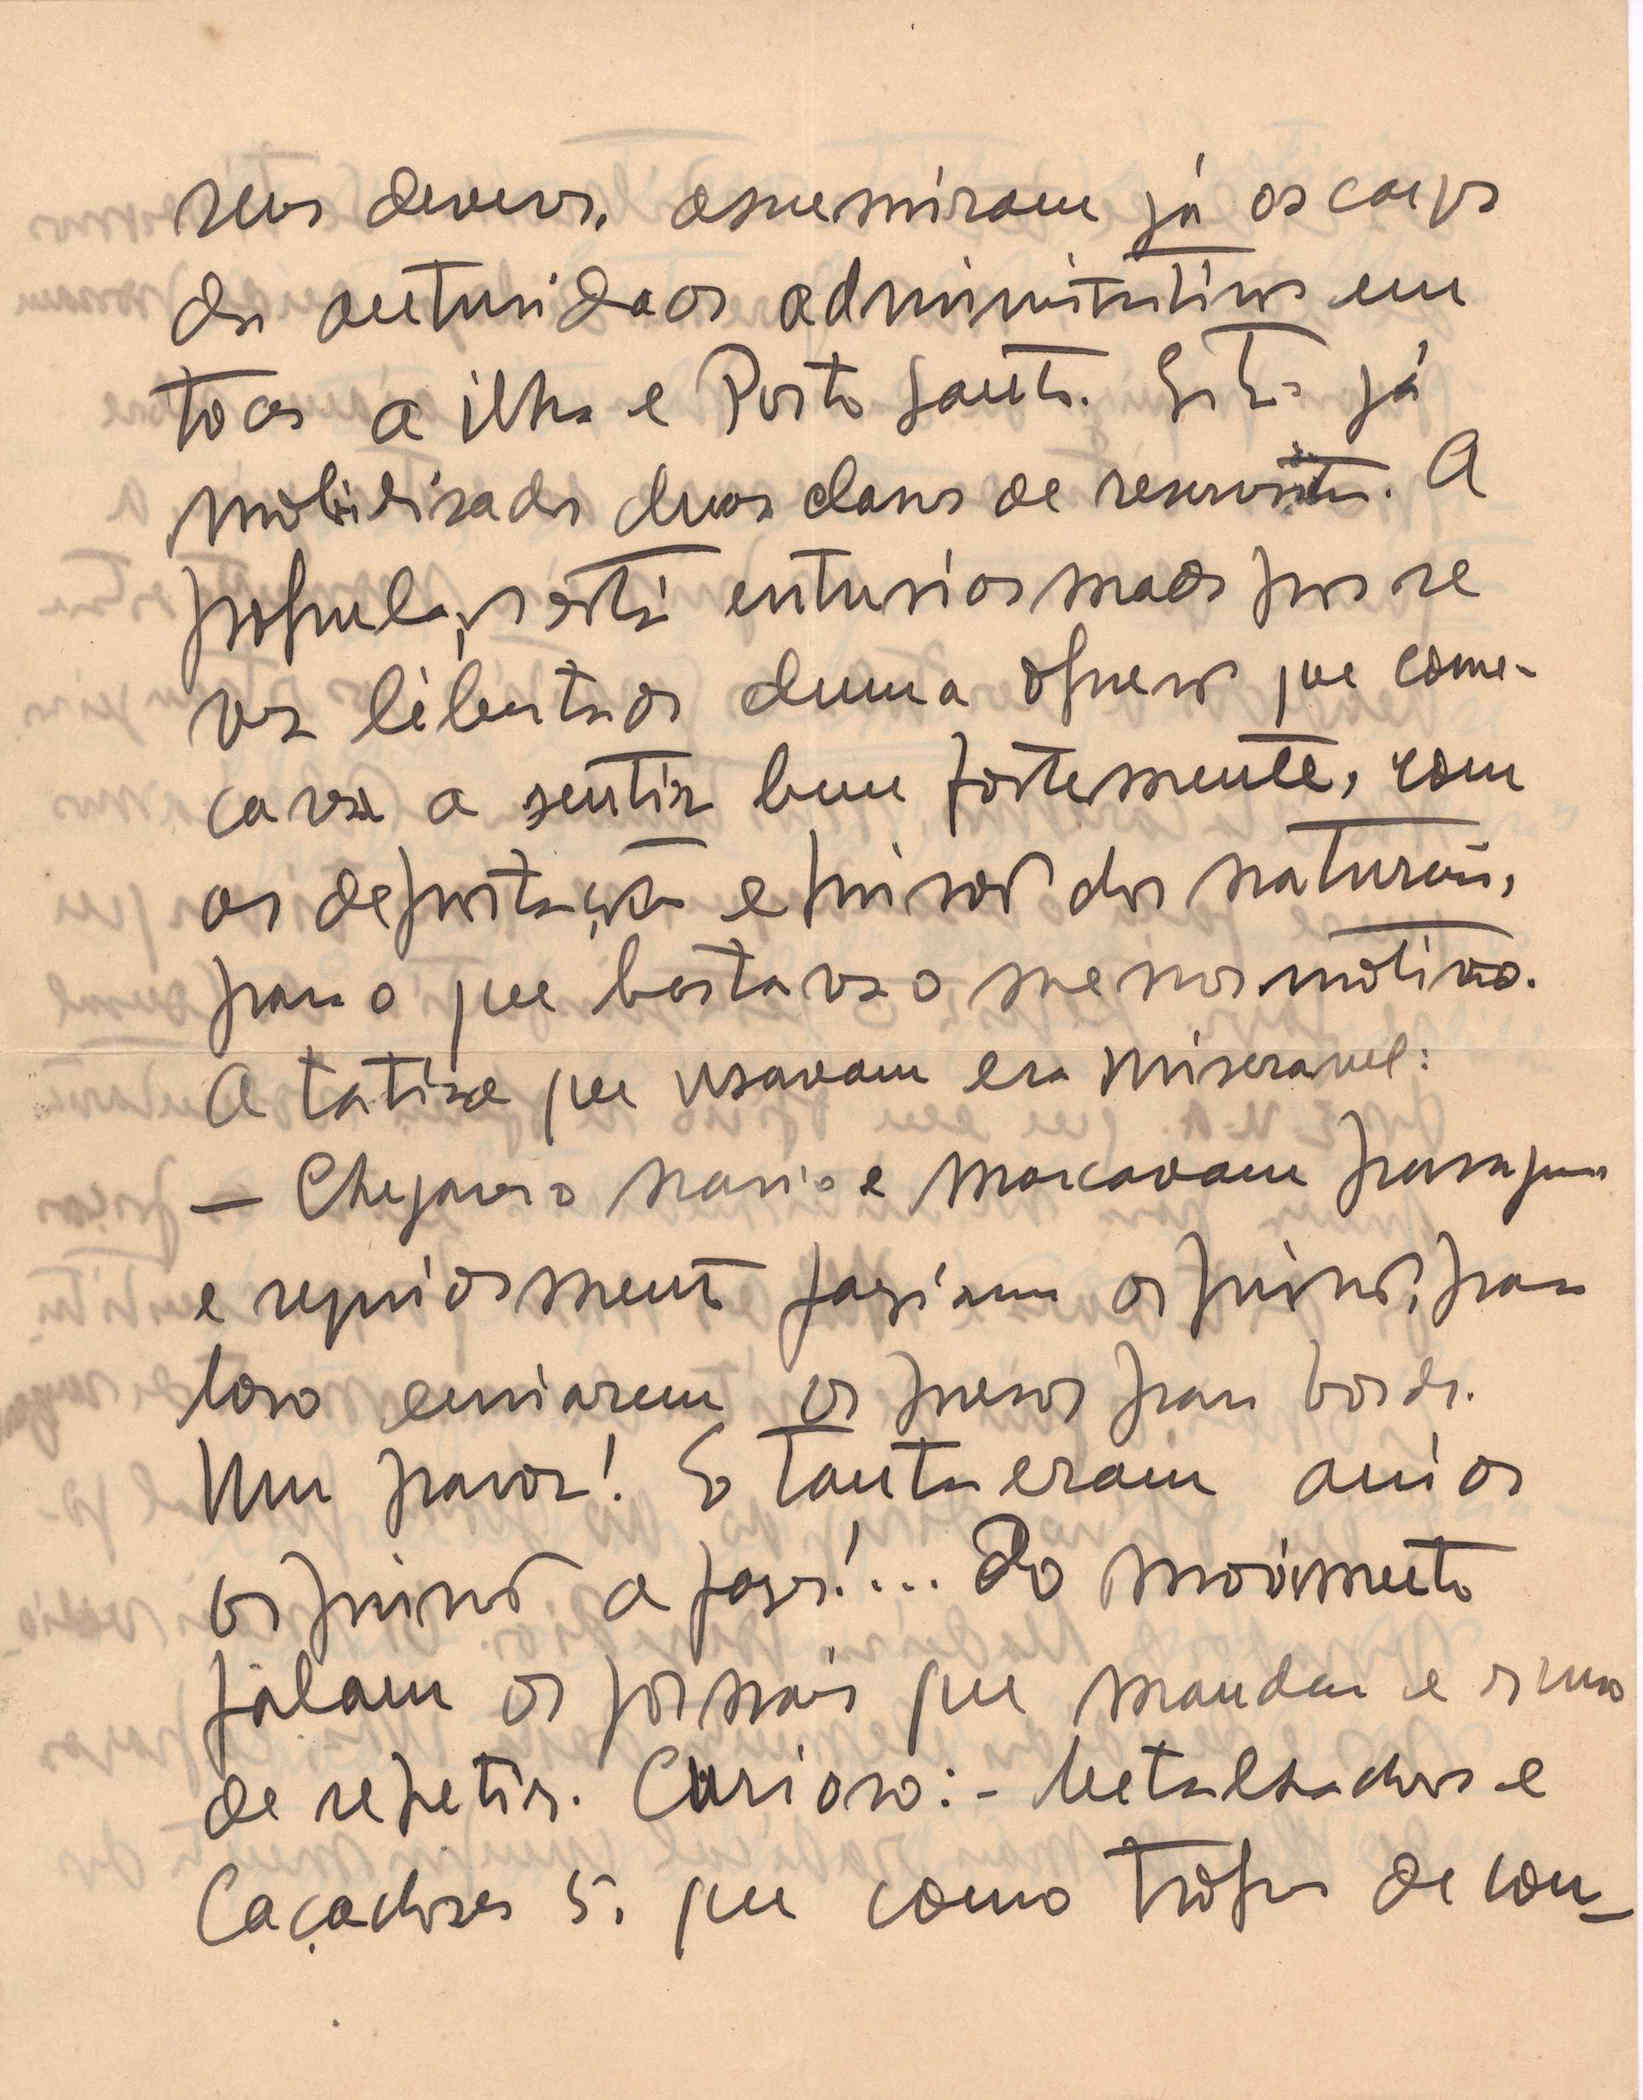 seus deveres, assumiram já os cargos
de autoridades administrativas em
toda a ilha e Porto Santo. Estão já
mobilisadas duas classes de reservistas. A
população está entusiasmada por se
ver libertada duma opressão que come-
çava a sentir bem fortemente, com
as deportações e prisões dos naturais,
para o que bastava o menor motivo.
A tatica que usavam era miseravel:
— Chegava o navio e marcavam passagens
e seguidamente faziam as prisões, para
logo enviarem os presos para bordo.
Um pavor! E tantas eram ainda
as prisões a fazer!... Do movimento
falam os jornais que mandam e
de repetir. Curioso: - Metralhadoras e
Caçadores 5, que como tropas de con-